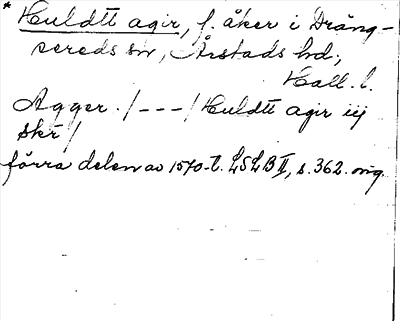 * Huldtt agir, f. åker i Dräng-
sereds sn, Årstads hd,
Hall. l.
Agger. /---/ Huldtt agir iij
skr /
förra delen av 1570-t. LSLB II, s. 362. orig.